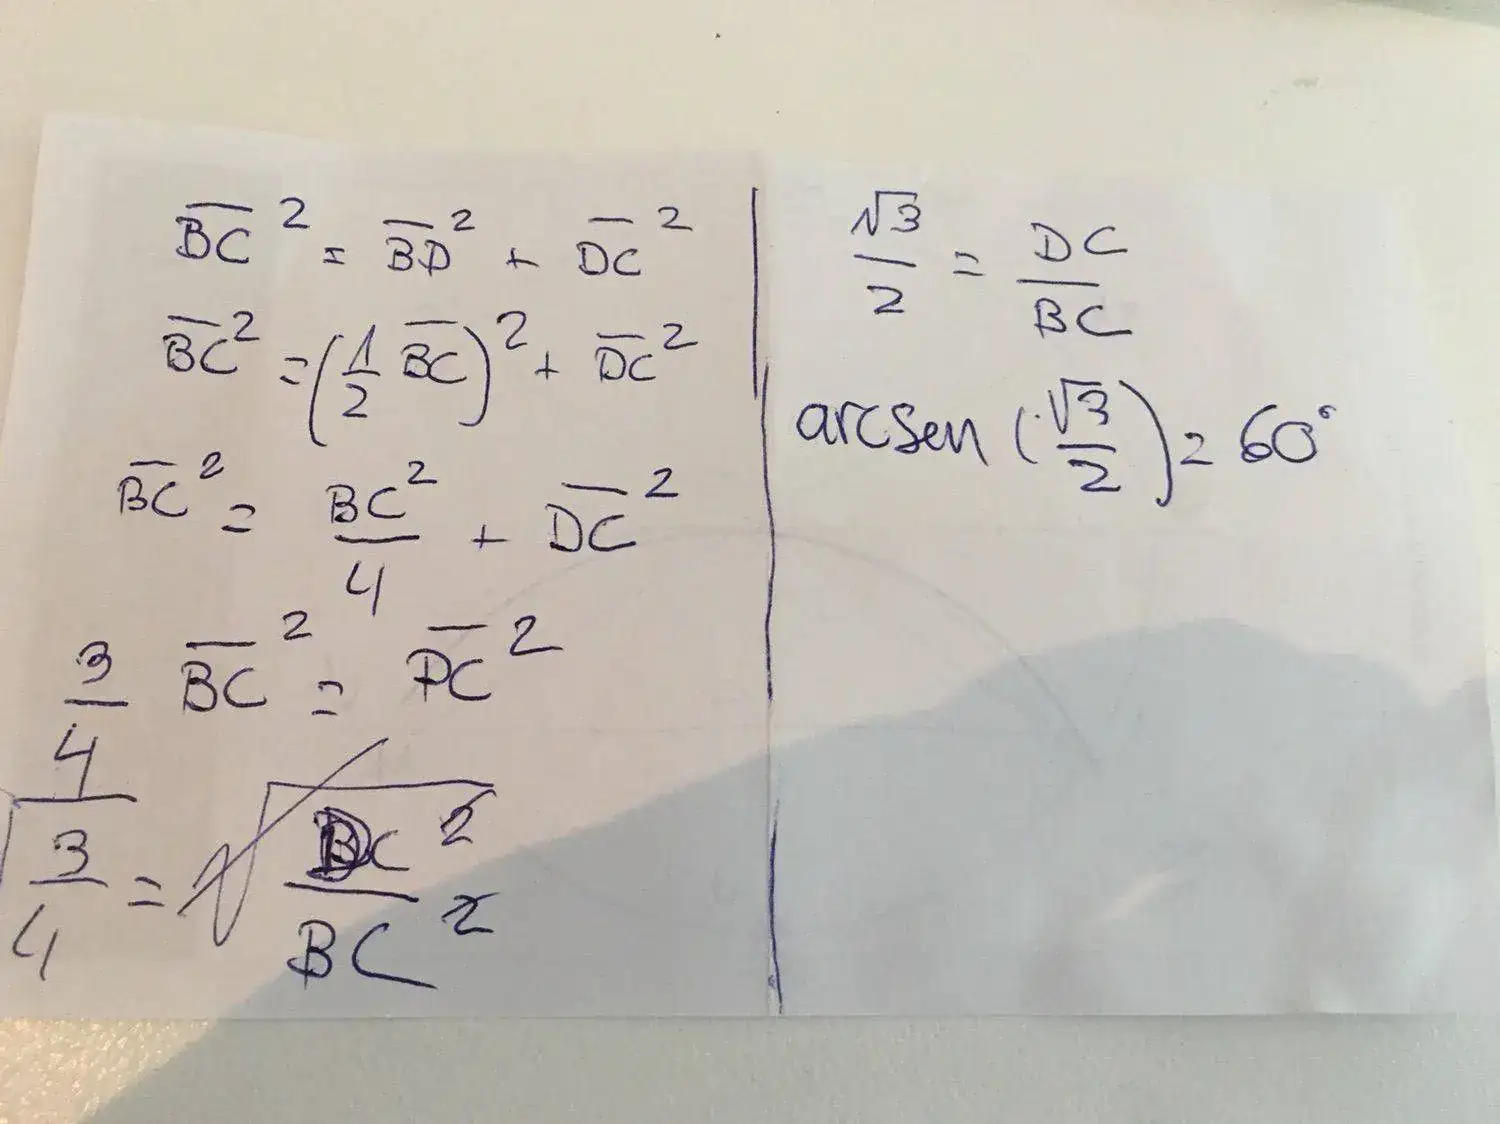 BC² = BD² + DC²
BC² = (1/2 BC)² + DC²
BC² = BC²/4 + DC²
3/4 BC² = DC²
√3/4 = √DC²/BC²
√3/2 = DC/BC
arcsen (√3/2) = 60°